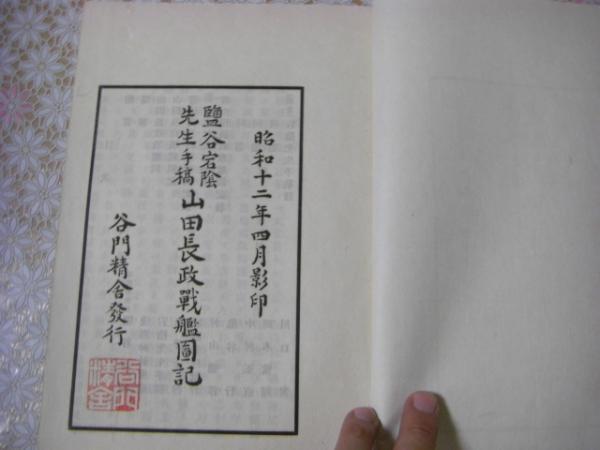 昭和十二年四月影印
鹽谷宕陰
先生手稿
山田長政戰艦圖記
谷門精舍發行
谷門
精舍